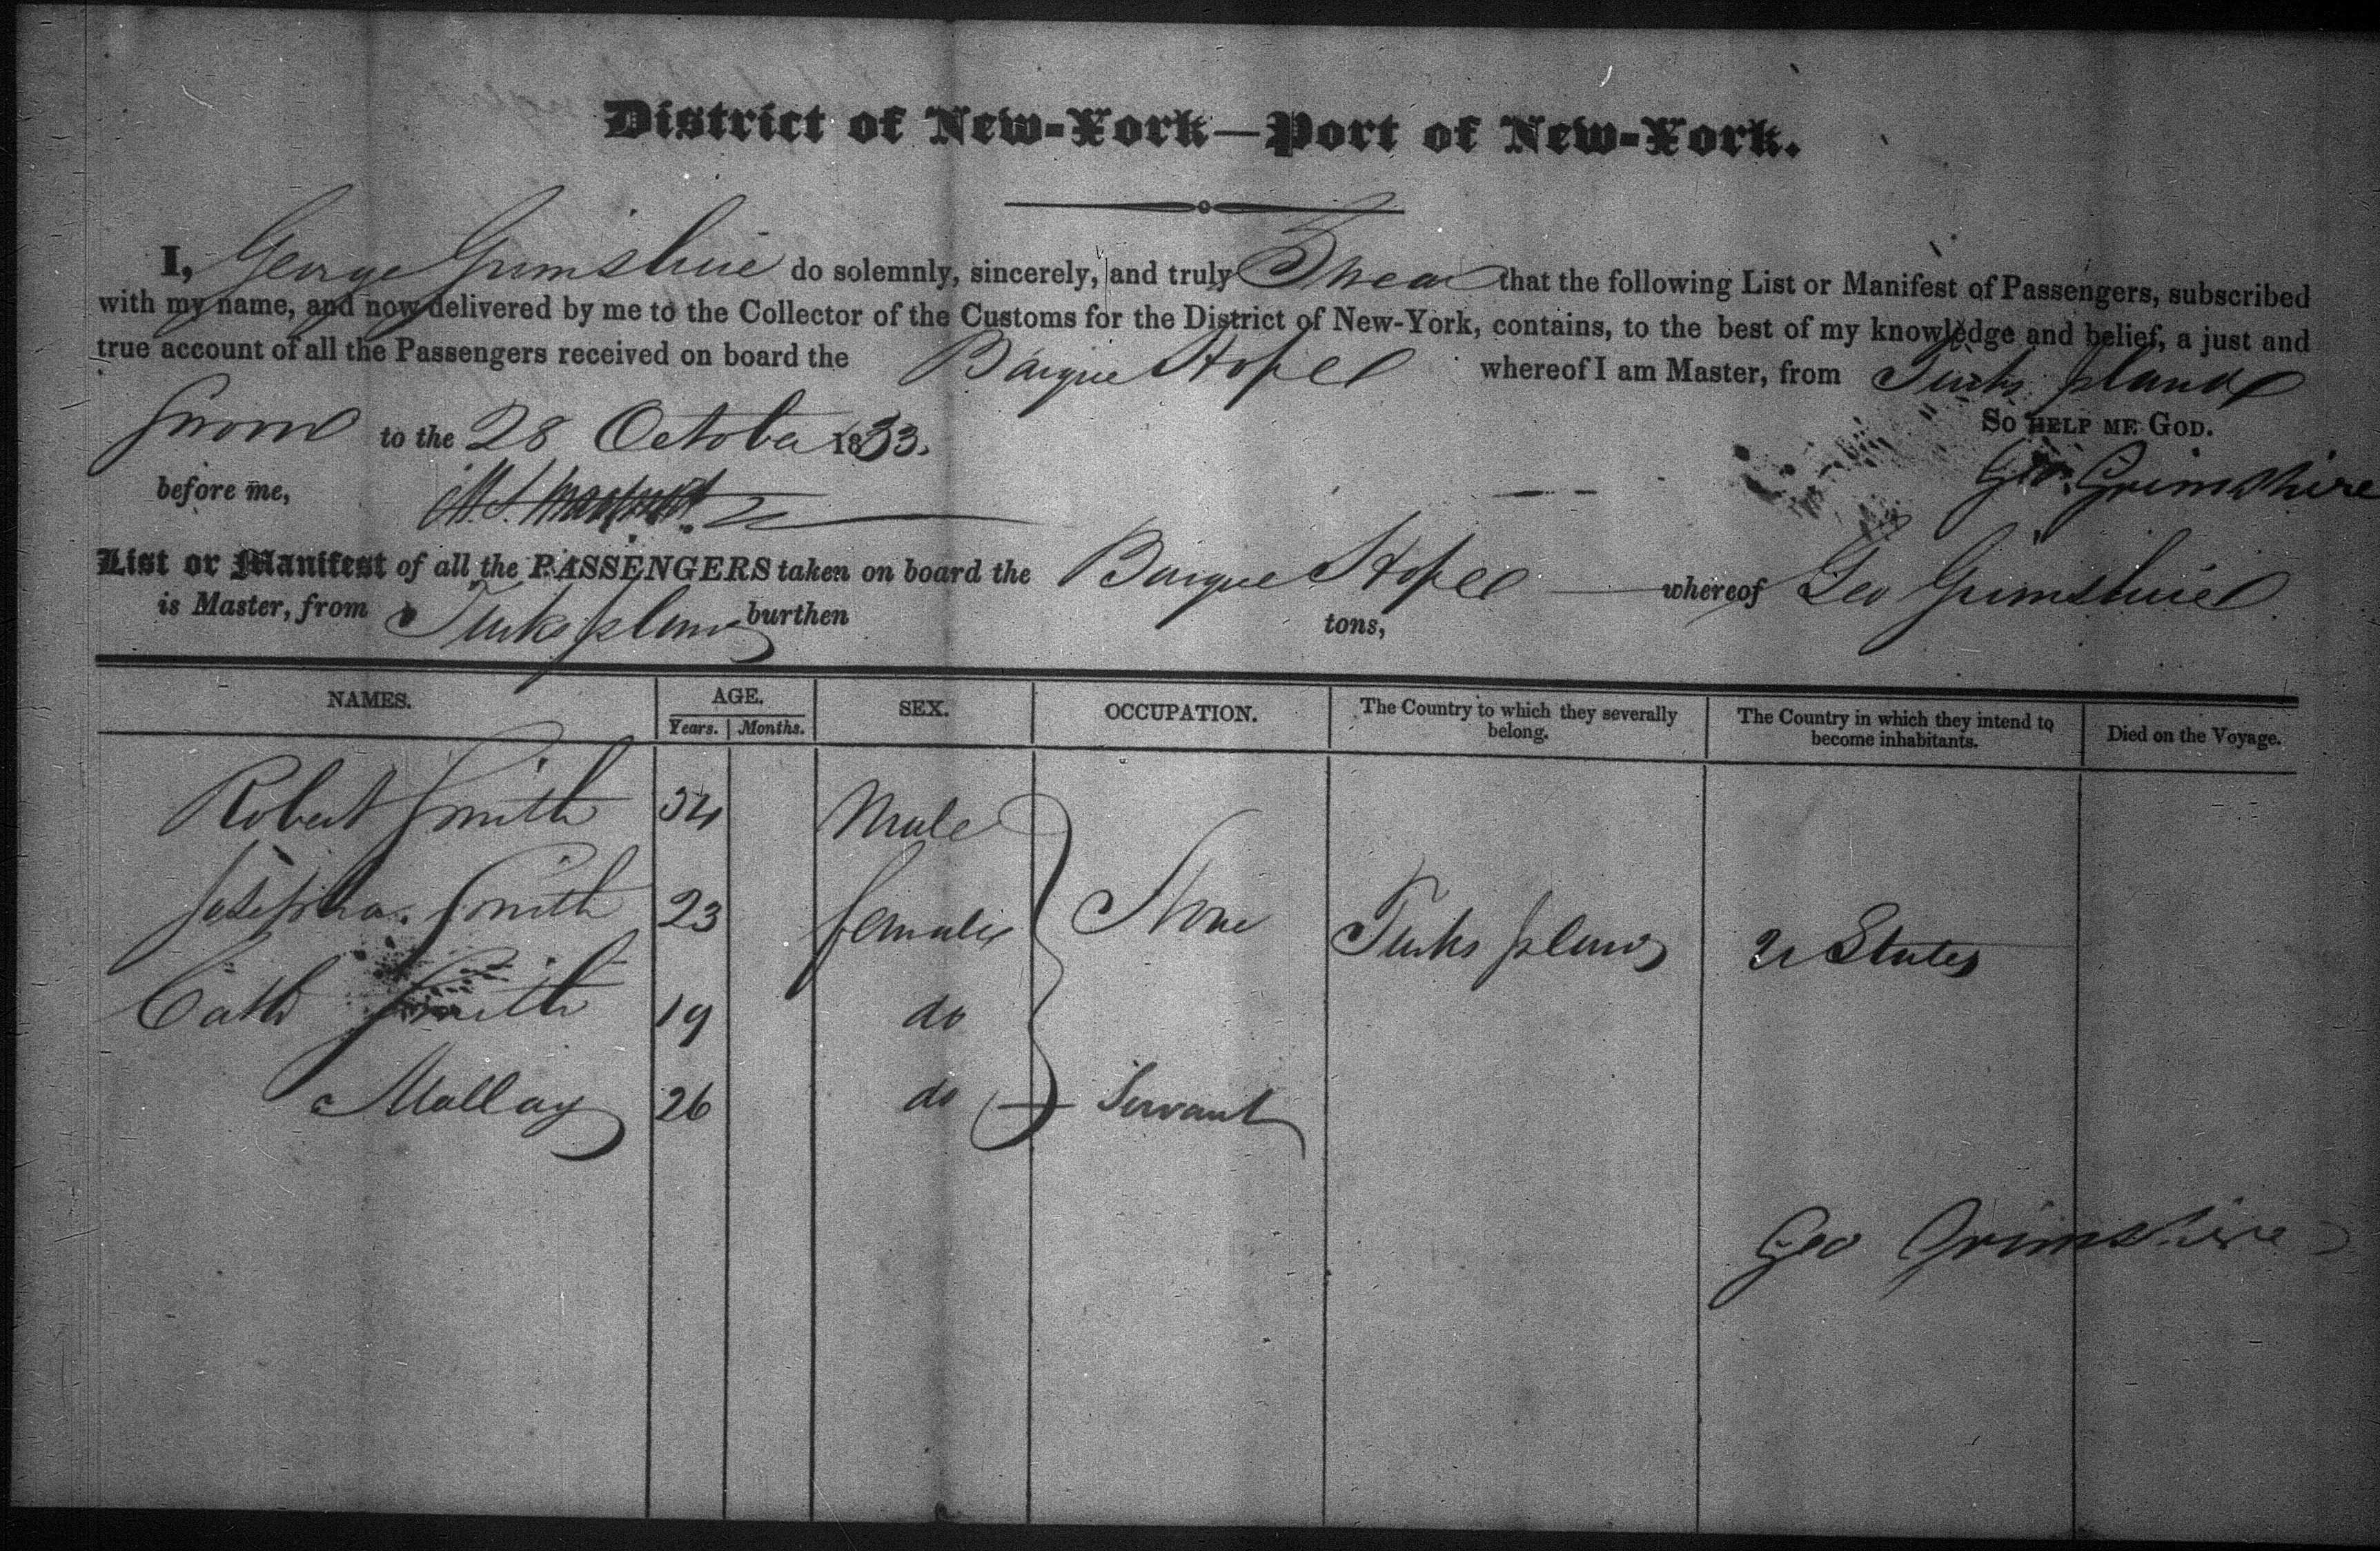 District of New-York—Port of New-York.
I, George Grimshire do solemnly, sincerely, and truly Swear that the following List or Manifest of Passengers, subscribed
with my name, and now delivered by me to the Collector of the Customs for the District of New-York, contains, to the best of my knowledge and belief, a just and
true account of all the Passengers received on board the Barque Hope whereof I am Master, from Turks Island
Sworn to the 28 October 1833. So HELP ME GOD.
before me, Geo. Grimshire
List or Manifest of all the PASSENGERS taken on board the Barque Hope whereof Geo Grimshire
is Master, from Turks Island burthen tons,
NAMES. AGE. SEX. OCCUPATION. The Country to which they severally belong. The Country in which they intend to become inhabitants. Died on the Voyage.
Years. Months.
Robert Smith 34 Male
Josepha Smith 23 female None Turks Island U States
Cath Smith 19 do
Mallay 26 do Servant
Geo Grimshire